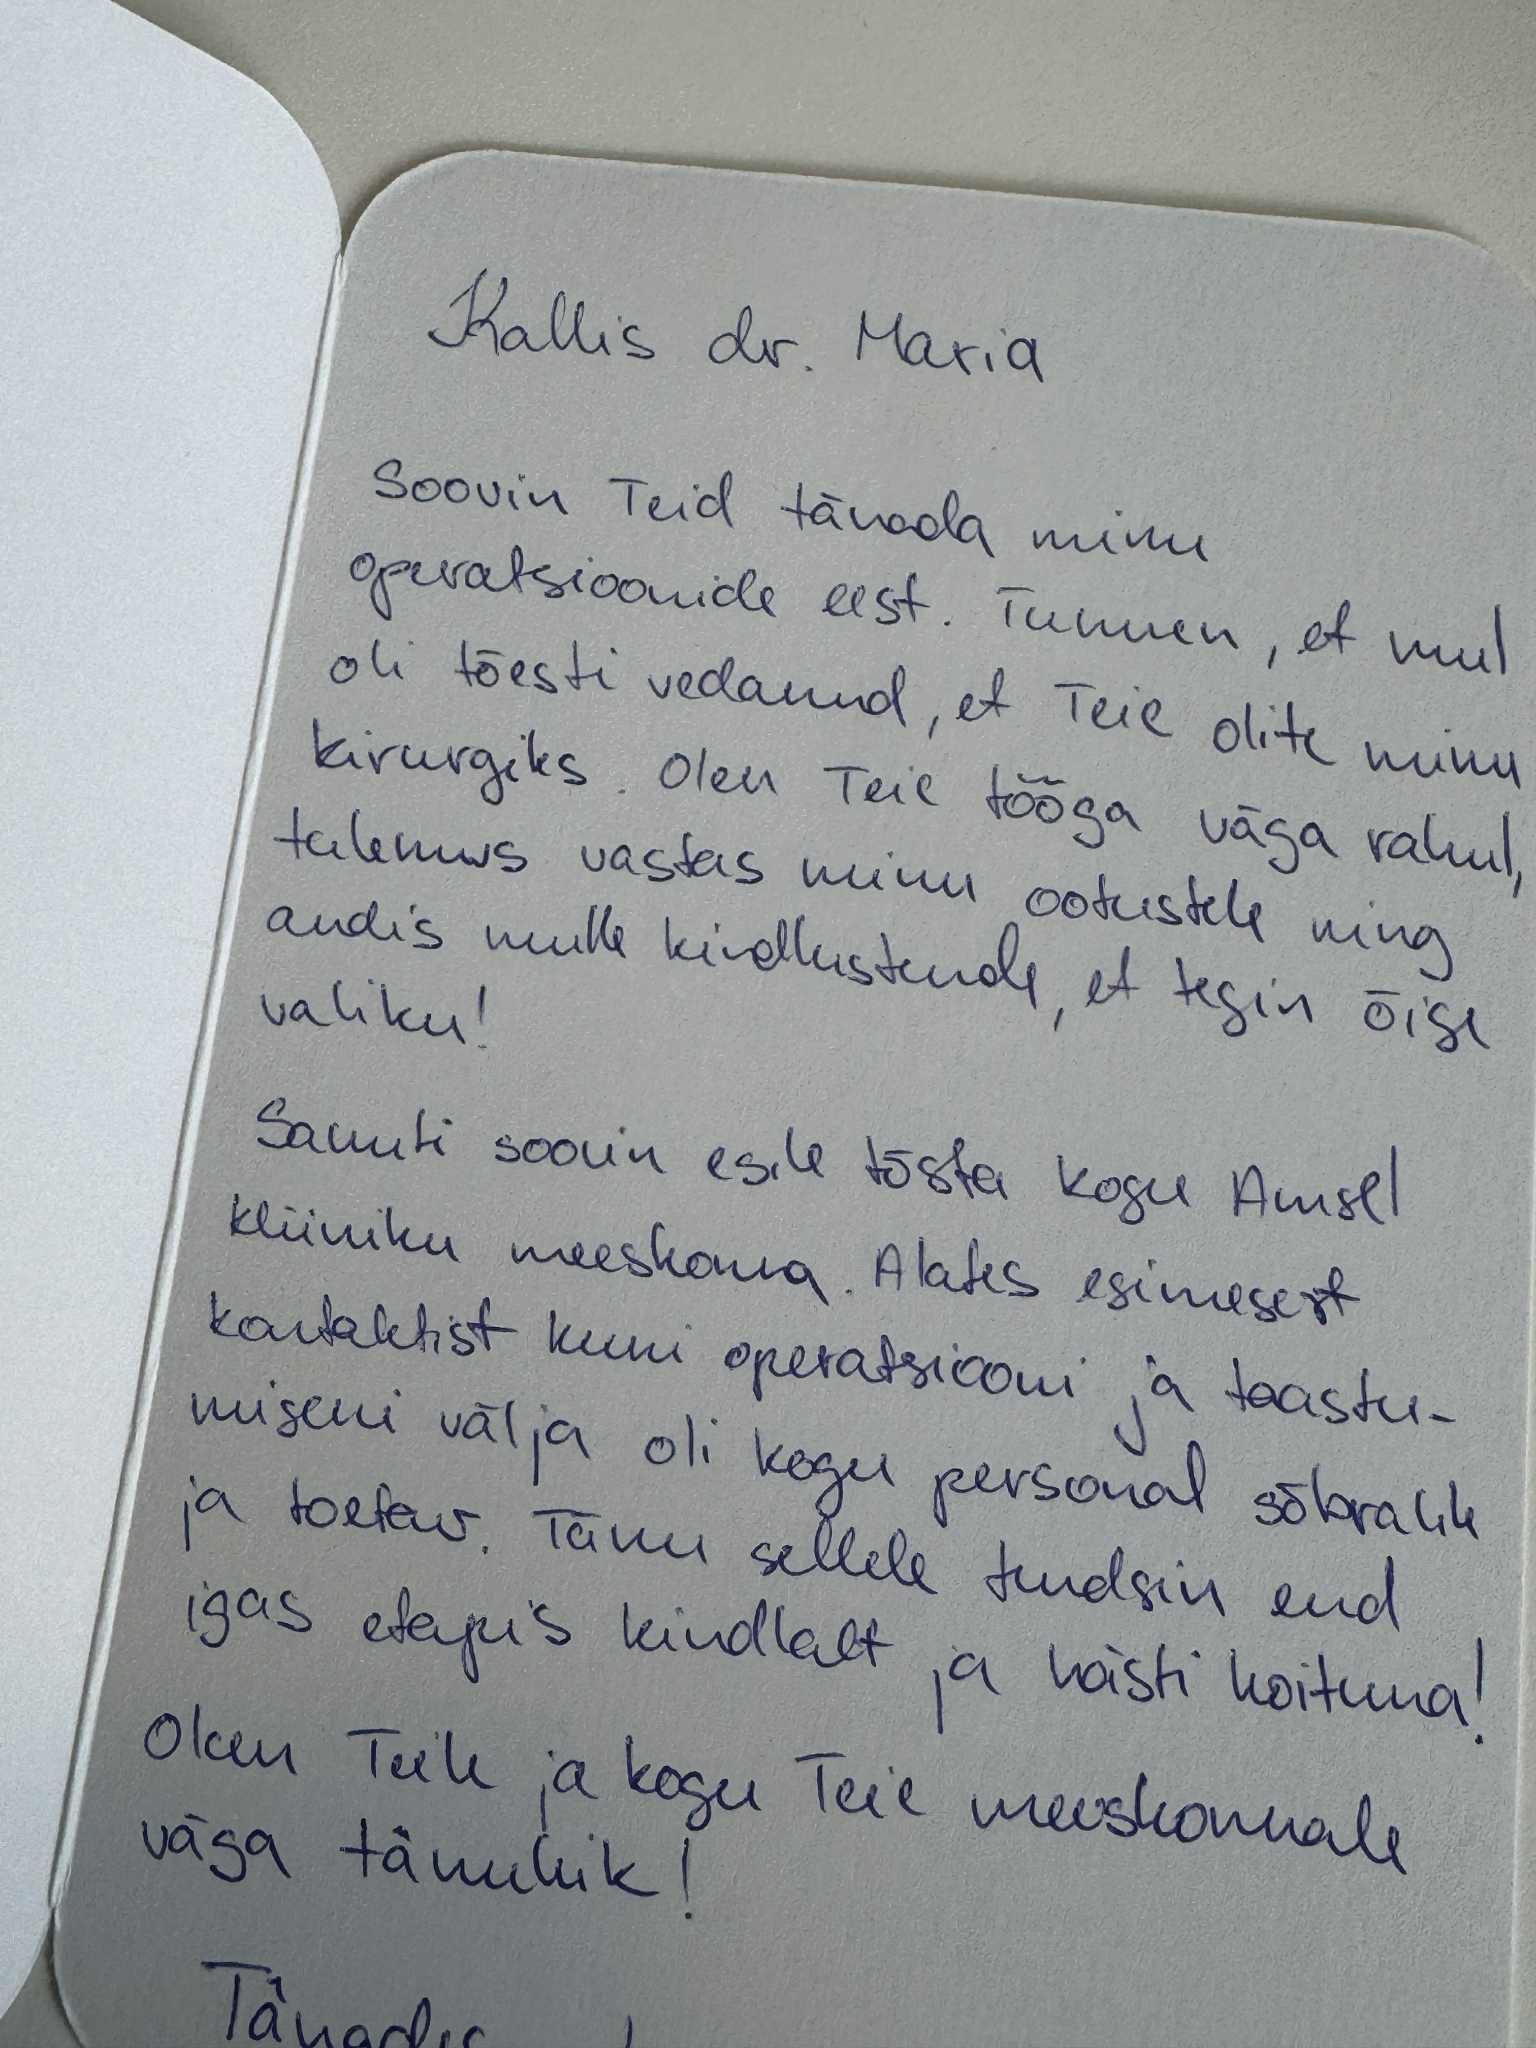 Kallis dr. Maria
Soovin Teid tänada minu
operatsioonide eest. Tunnen, et mul
oli tõesti vedanud, et Teie olite minu
kirurgiks. Olen Teie tööga väga rahul,
tulemus vastas minu ootustele ning
andis mulle kindlustunde, et tegin õige
valiku!
Samuti soovin esile tõsta kogu Amsel
kliiniku meeskonna. Alates esimesest
kontaktist kuni operatsiooni ja taastu-
miseni välja oli kogu personal sõbralik
ja toetav. Tänu sellele tundsin end
igas etapis kindlalt ja hästi hoituna!
Olen Teile ja kogu Teie meeskonnale
väga tänulik!